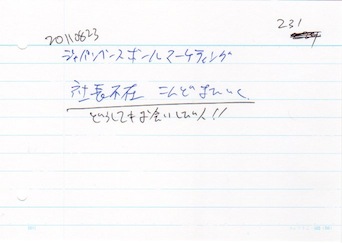 231
20110823
ジャパンベースボールマーケティング
社長不在 こんどはいく
どうしてもお会いしたい人!!